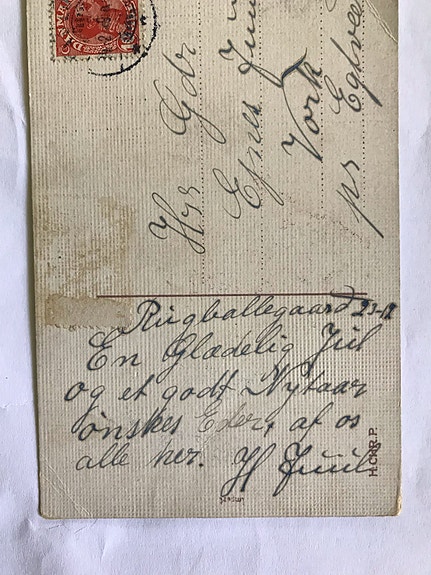 DANMARK
Hrr Gdr
Juul
Vork
pr Egtved
Ringballegaard 23-12
En Glædelig Jul
og et godt Nytaar
ønskes Eder, af os
alle her. H Juul
H.CHR.P.